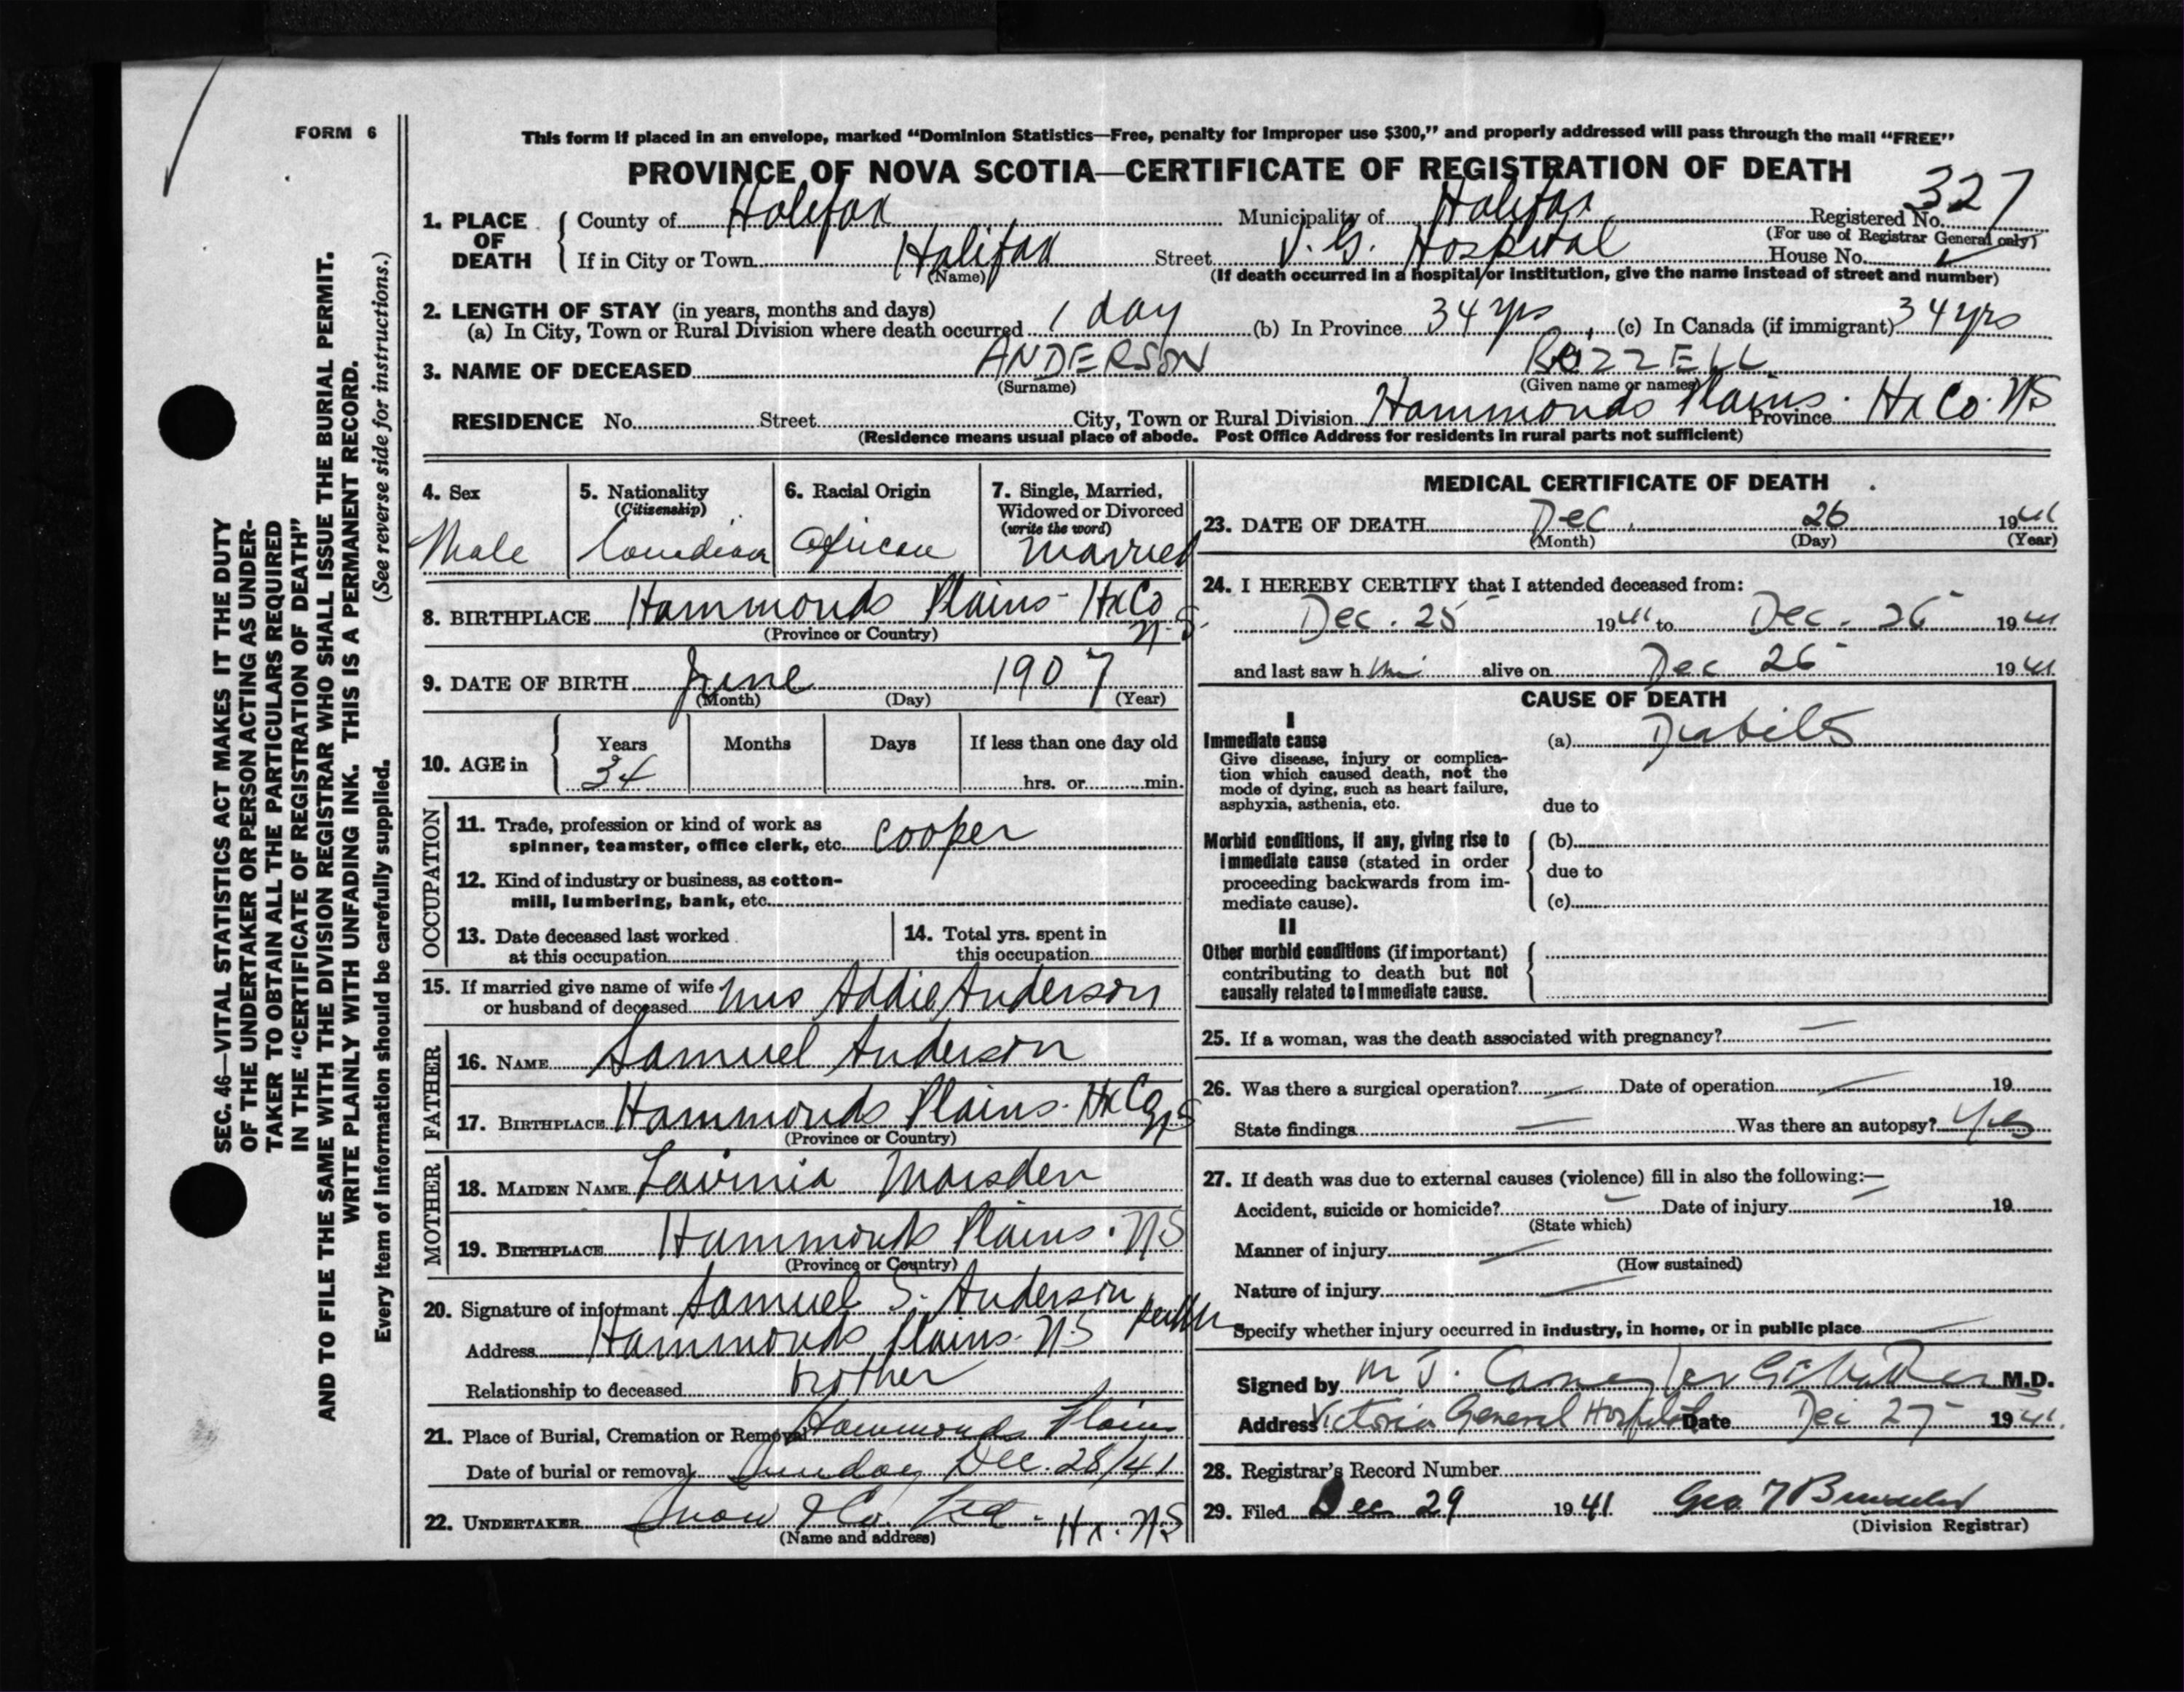 FORM 6
This form if placed in an envelope, marked “Dominion Statistics—Free, penalty for improper use $300,” and properly addressed will pass through the mail “FREE”
PROVINCE OF NOVA SCOTIA—CERTIFICATE OF REGISTRATION OF DEATH
327
1. PLACE OF DEATH
County of Halifax Municipality of Halifax Registered No.
(For use of Registrar General only)
If in City or Town Halifax Street V. G. Hospital House No.
(Name) (If death occurred in a hospital or institution, give the name instead of street and number)
2. LENGTH OF STAY (in years, months and days)
(a) In City, Town or Rural Division where death occurred 1 day (b) In Province 34 yrs (c) In Canada (if immigrant) 34 yrs
3. NAME OF DECEASED ANDERSON
(Surname) (Given name or names)
RESIDENCE No. Street City, Town or Rural Division Hammonds Plains. Province Hx Co. NS
(Residence means usual place of abode. Post Office Address for residents in rural parts not sufficient)
4. Sex
Male
5. Nationality
(Citizenship)
Canadian
6. Racial Origin
African
7. Single, Married,
Widowed or Divorced
(write the word)
Married
8. BIRTHPLACE Hammonds Plains - Hx Co
N.S.
(Province or Country)
9. DATE OF BIRTH June 1907
(Month) (Day) (Year)
10. AGE in
Years Months Days If less than one day old
34 hrs. or min.
OCCUPATION
11. Trade, profession or kind of work as
spinner, teamster, office clerk, etc. Cooper
12. Kind of industry or business, as cotton-
mill, lumbering, bank, etc.
13. Date deceased last worked
at this occupation
14. Total yrs. spent in
this occupation
15. If married give name of wife
or husband of deceased Mrs Addie Anderson
FATHER
16. NAME Samuel Anderson
17. BIRTHPLACE Hammonds Plains. Hx Co NS
(Province or Country)
MOTHER
18. MAIDEN NAME Lavinia Marsden
19. BIRTHPLACE Hammonds Plains. NS
(Province or Country)
20. Signature of informant Samuel S. Anderson
Address Hammonds Plains. NS
Relationship to deceased brother
21. Place of Burial, Cremation or Removal Hammonds Plains
Date of burial or removal Sunday Dec. 28/41
22. UNDERTAKER Snow & Co. Ltd. Hx. NS
(Name and address)
MEDICAL CERTIFICATE OF DEATH
23. DATE OF DEATH Dec. 26 1941
(Month) (Day) (Year)
24. I HEREBY CERTIFY that I attended deceased from:
Dec. 25 1941 to Dec. 26 1941
and last saw him alive on Dec 26 1941
CAUSE OF DEATH
I
Immediate cause
Give disease, injury or complica-
tion which caused death, not the
mode of dying, such as heart failure,
asphyxia, asthenia, etc.
(a)
due to
Morbid conditions, if any, giving rise to
immediate cause (stated in order
proceeding backwards from im-
mediate cause).
(b)
due to
(c)
II
Other morbid conditions (if important)
contributing to death but not
causally related to immediate cause.
25. If a woman, was the death associated with pregnancy? —
26. Was there a surgical operation? — Date of operation — 19
State findings — Was there an autopsy? Yes
27. If death was due to external causes (violence) fill in also the following:—
Accident, suicide or homicide? — Date of injury — 19
(State which)
Manner of injury —
(How sustained)
Nature of injury —
Specify whether injury occurred in industry, in home, or in public place —
Signed by M.D.
Address Victoria General Hospital Date Dec 27 1941.
28. Registrar's Record Number
29. Filed Dec 29 1941.
(Division Registrar)
SEC. 46—VITAL STATISTICS ACT MAKES IT THE DUTY
OF THE UNDERTAKER OR PERSON ACTING AS UNDER-
TAKER TO OBTAIN ALL THE PARTICULARS REQUIRED
IN THE “CERTIFICATE OF REGISTRATION OF DEATH”
AND TO FILE THE SAME WITH THE DIVISION REGISTRAR WHO SHALL ISSUE THE BURIAL PERMIT.
WRITE PLAINLY WITH UNFADING INK. THIS IS A PERMANENT RECORD.
Every item of information should be carefully supplied. (See reverse side for instructions.)